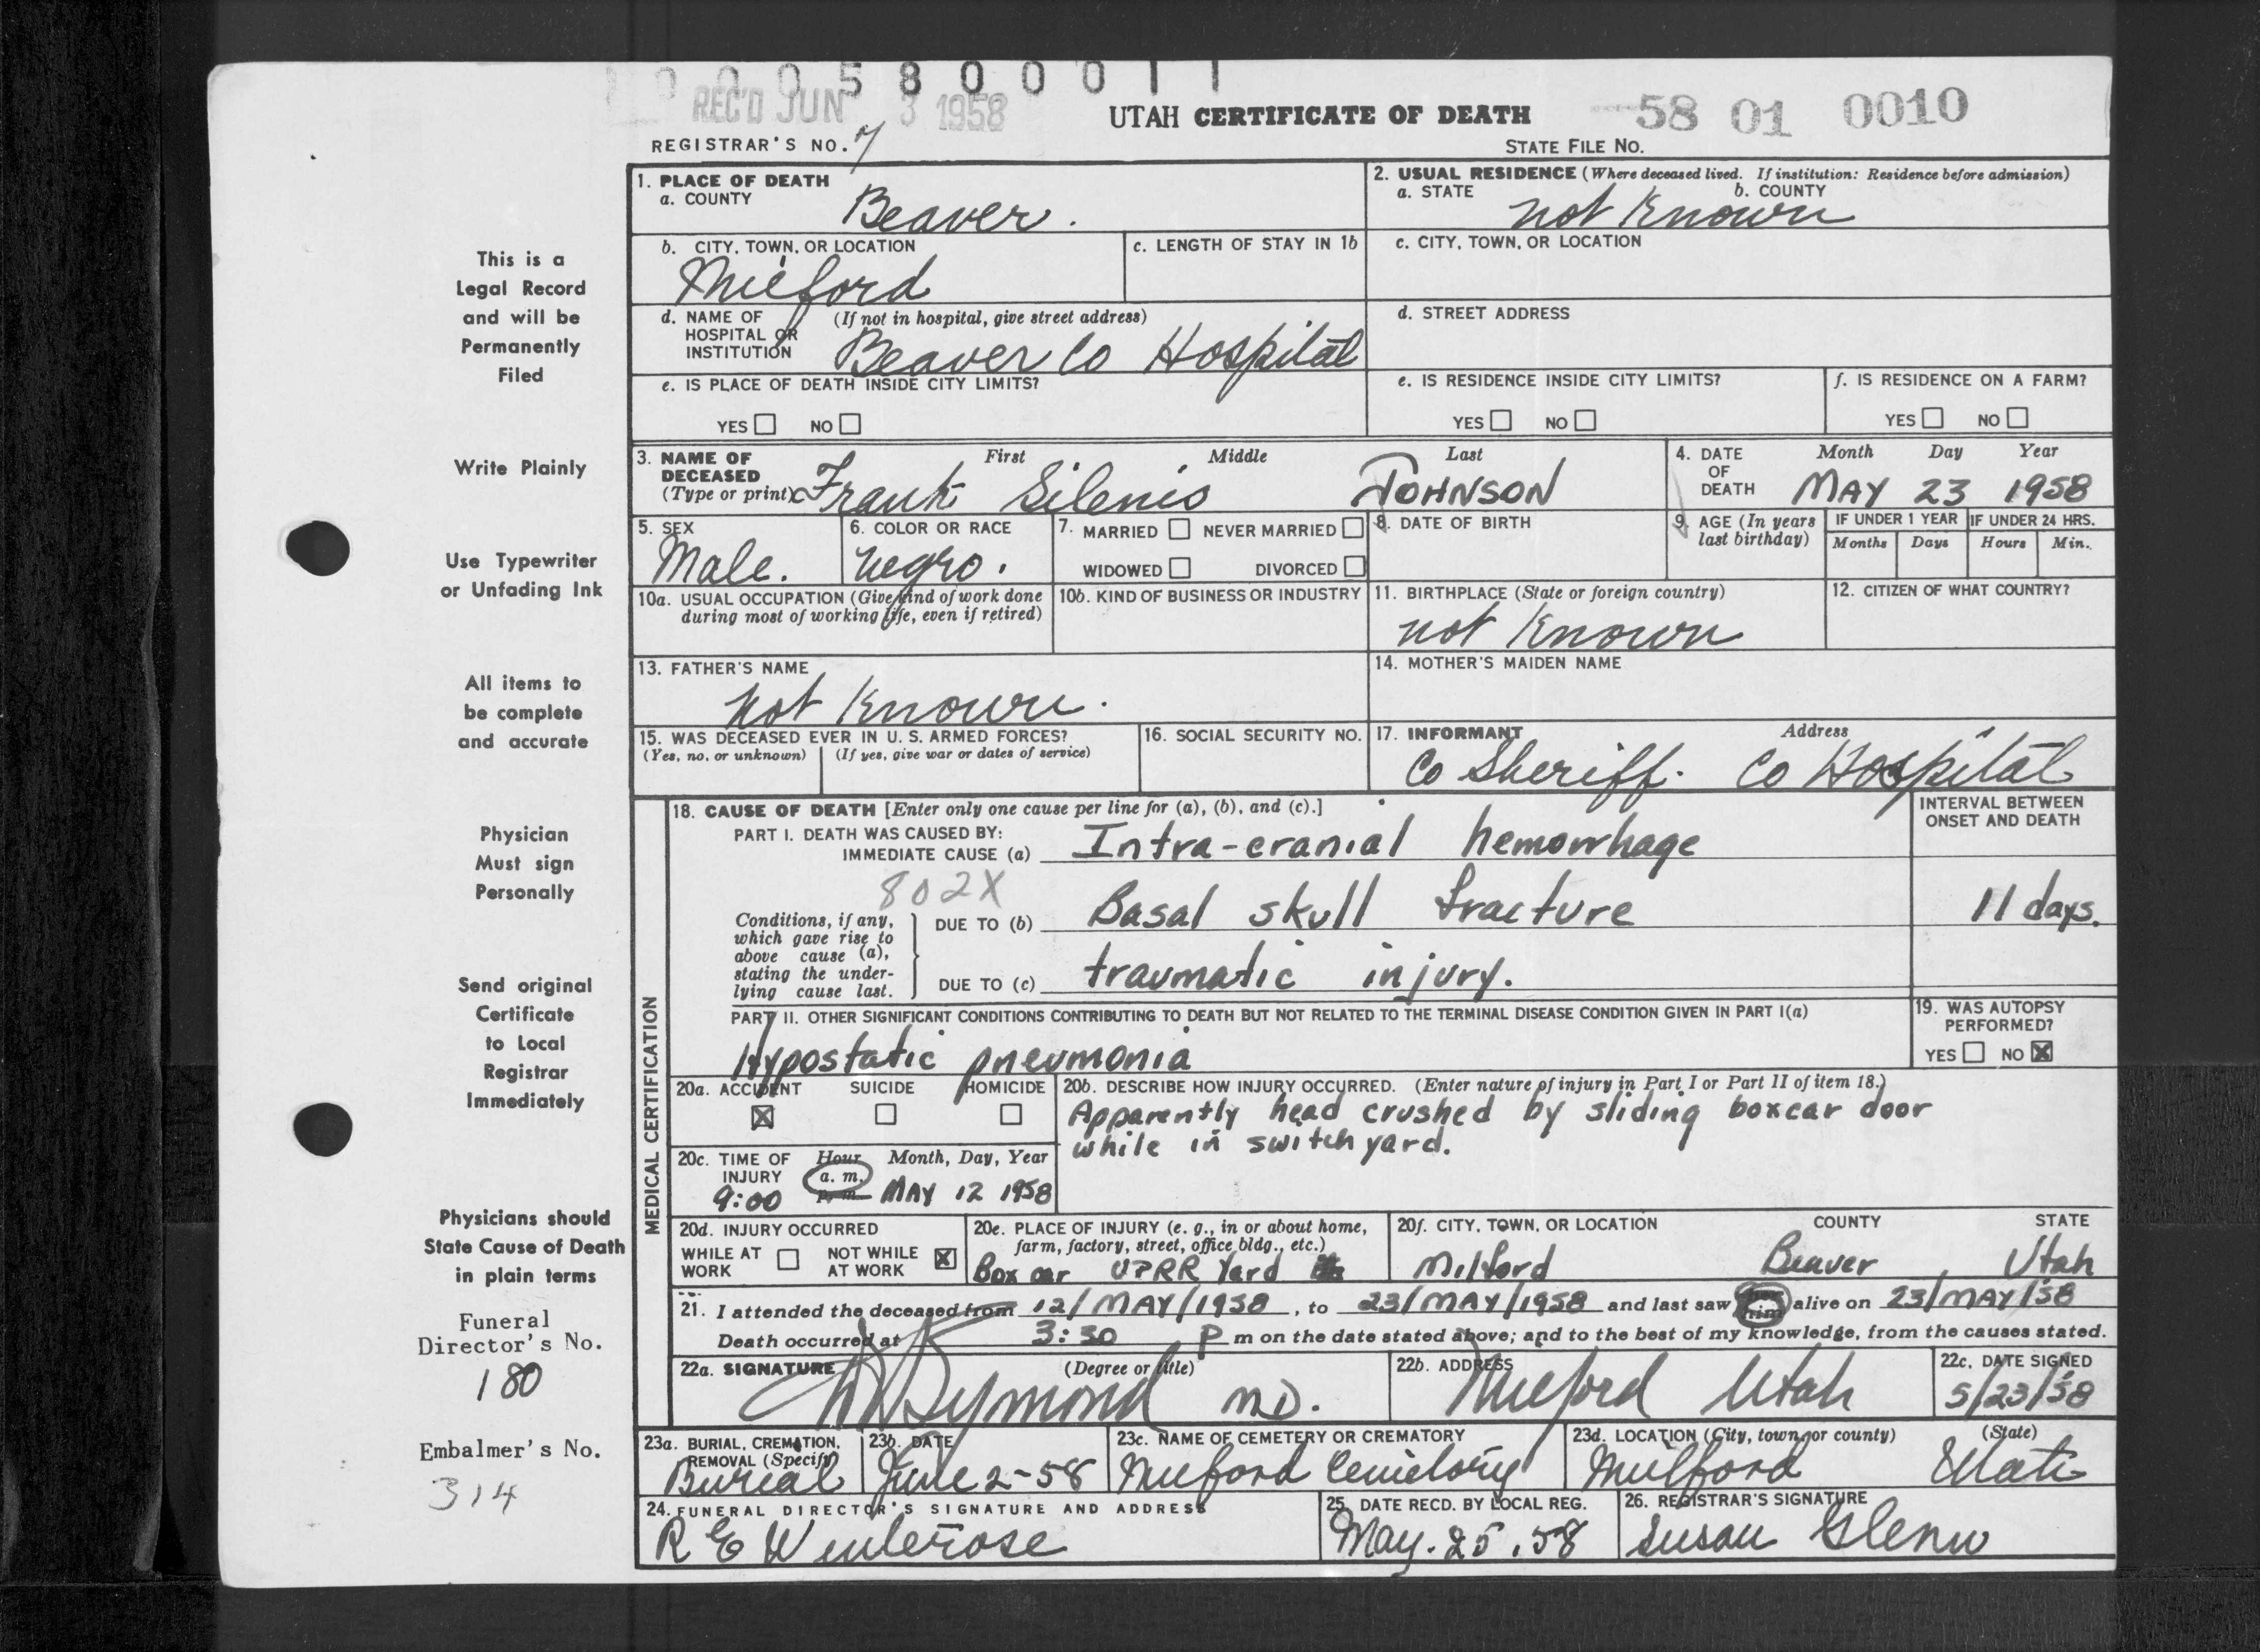 0 0 0 5 8 0 0 0 1 1
REC'D JUN 3 1958
UTAH CERTIFICATE OF DEATH
58 01 0010
REGISTRAR'S NO. 7
STATE FILE NO.
1. PLACE OF DEATH
a. COUNTY Beaver.
2. USUAL RESIDENCE (Where deceased lived. If institution: Residence before admission)
a. STATE b. COUNTY
not Known
b. CITY, TOWN, OR LOCATION
Milford
c. LENGTH OF STAY IN 1b
c. CITY, TOWN, OR LOCATION
d. NAME OF HOSPITAL OR INSTITUTION (If not in hospital, give street address)
Beaver Co Hospital
d. STREET ADDRESS
e. IS PLACE OF DEATH INSIDE CITY LIMITS?
YES NO
e. IS RESIDENCE INSIDE CITY LIMITS?
YES NO
f. IS RESIDENCE ON A FARM?
YES NO
3. NAME OF DECEASED (Type or print)
First Middle Last
Frank Silenis JOHNSON
4. DATE OF DEATH
Month Day Year
MAY 23 1958
5. SEX
Male.
6. COLOR OR RACE
negro.
7. MARRIED NEVER MARRIED
WIDOWED DIVORCED
8. DATE OF BIRTH
9. AGE (In years last birthday)
IF UNDER 1 YEAR
Months Days
IF UNDER 24 HRS.
Hours Min.
10a. USUAL OCCUPATION (Give kind of work done
during most of working life, even if retired)
10b. KIND OF BUSINESS OR INDUSTRY
11. BIRTHPLACE (State or foreign country)
not Known
12. CITIZEN OF WHAT COUNTRY?
13. FATHER'S NAME
not Known.
14. MOTHER'S MAIDEN NAME
15. WAS DECEASED EVER IN U. S. ARMED FORCES?
(Yes, no, or unknown) (If yes, give war or dates of service)
16. SOCIAL SECURITY NO.
17. INFORMANT Address
Co Sheriff. Co Hospital
MEDICAL CERTIFICATION
18. CAUSE OF DEATH [Enter only one cause per line for (a), (b), and (c).]
INTERVAL BETWEEN
ONSET AND DEATH
PART I. DEATH WAS CAUSED BY:
IMMEDIATE CAUSE (a) Intra-cranial hemorrhage
802X
Conditions, if any,
which gave rise to
above cause (a),
stating the under-
lying cause last.
DUE TO (b) Basal skull fracture 11 days.
DUE TO (c) traumatic injury.
PART II. OTHER SIGNIFICANT CONDITIONS CONTRIBUTING TO DEATH BUT NOT RELATED TO THE TERMINAL DISEASE CONDITION GIVEN IN PART I(a)
Hypostatic pneumonia
19. WAS AUTOPSY
PERFORMED?
YES NO X
20a. ACCIDENT SUICIDE HOMICIDE
X
20b. DESCRIBE HOW INJURY OCCURRED. (Enter nature of injury in Part I or Part II of item 18.)
Apparently head crushed by sliding boxcar door
while in switch yard.
20c. TIME OF INJURY
Hour Month, Day, Year
9:00 a. m. p. m. MAY 12 1958
20d. INJURY OCCURRED
WHILE AT WORK
NOT WHILE AT WORK X
20e. PLACE OF INJURY (e. g., in or about home,
farm, factory, street, office bldg., etc.)
Box car UPRR Yard
20f. CITY, TOWN, OR LOCATION COUNTY STATE
Milford Beaver Utah
21. I attended the deceased from 12/MAY/1958, to 23/MAY/1958 and last saw him alive on 23/MAY/58
Death occurred at 3:30 P m on the date stated above; and to the best of my knowledge, from the causes stated.
22a. SIGNATURE (Degree or title)
Symond M.D.
22b. ADDRESS
Milford Utah
22c. DATE SIGNED
5/23/58
23a. BURIAL, CREMATION,
REMOVAL (Specify)
Burial
23b. DATE
June 2-58
23c. NAME OF CEMETERY OR CREMATORY
Milford Cemetery
23d. LOCATION (City, town, or county) (State)
Milford Utah
24. FUNERAL DIRECTOR'S SIGNATURE AND ADDRESS
R E Winterose
25. DATE RECD. BY LOCAL REG.
May. 25. 58
26. REGISTRAR'S SIGNATURE
Susan Glenn
This is a
Legal Record
and will be
Permanently
Filed
Write Plainly
Use Typewriter
or Unfading Ink
All items to
be complete
and accurate
Physician
Must sign
Personally
Send original
Certificate
to Local
Registrar
Immediately
Physicians should
State Cause of Death
in plain terms
Funeral
Director's No.
180
Embalmer's No.
314